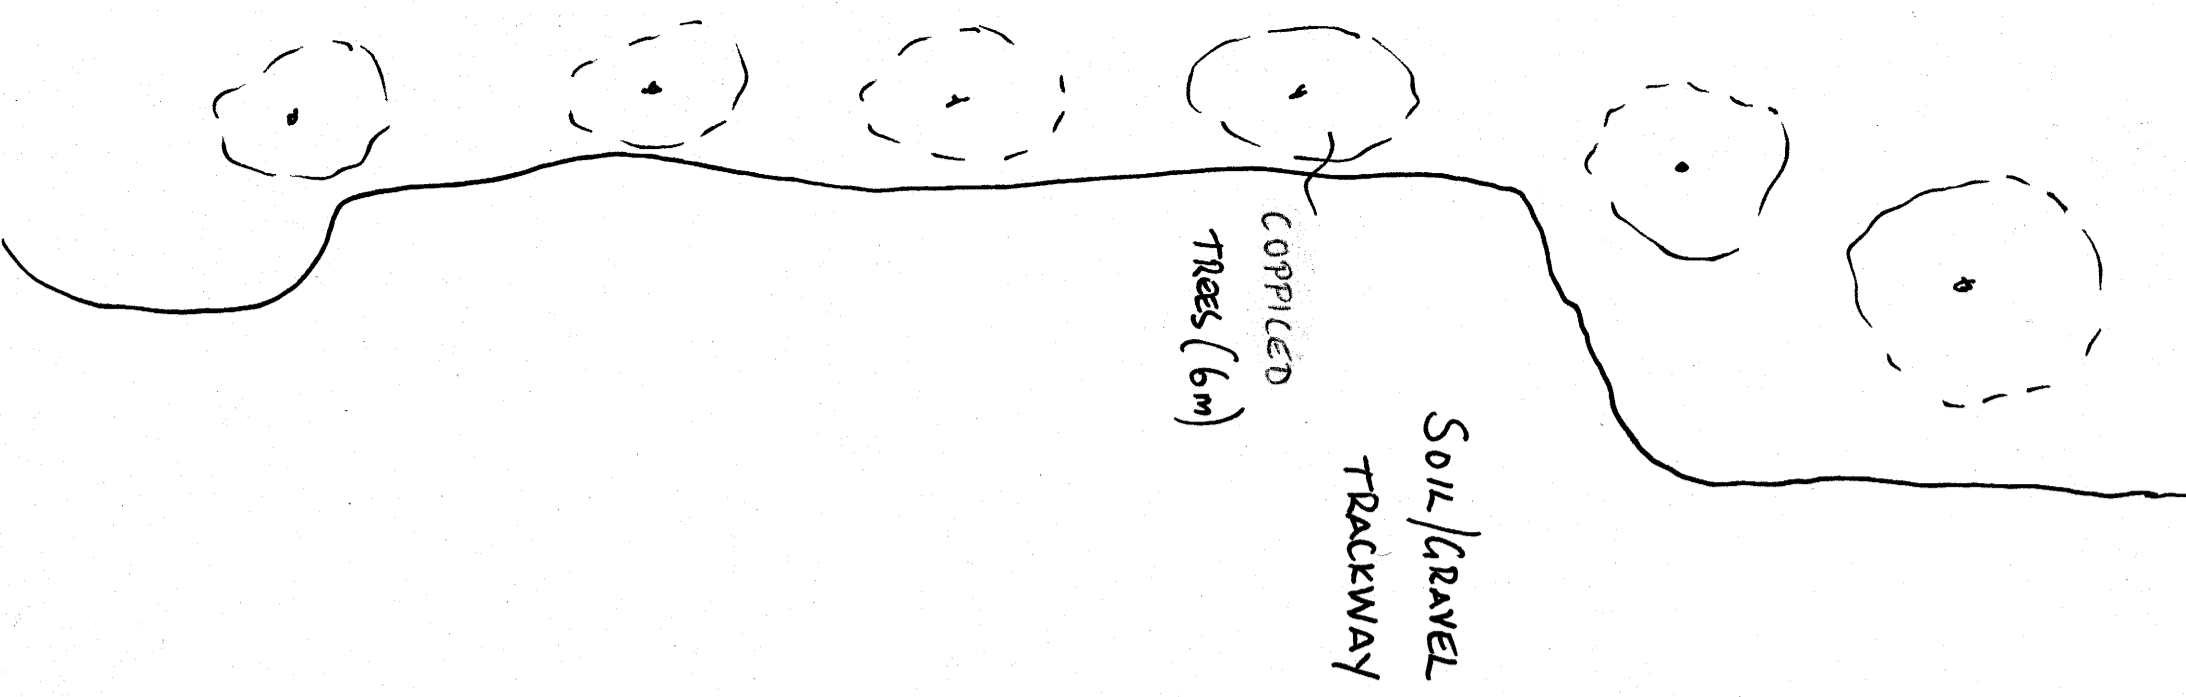 COPPICED
TREES (6m)
SOIL/GRAVEL
TRACKWAY